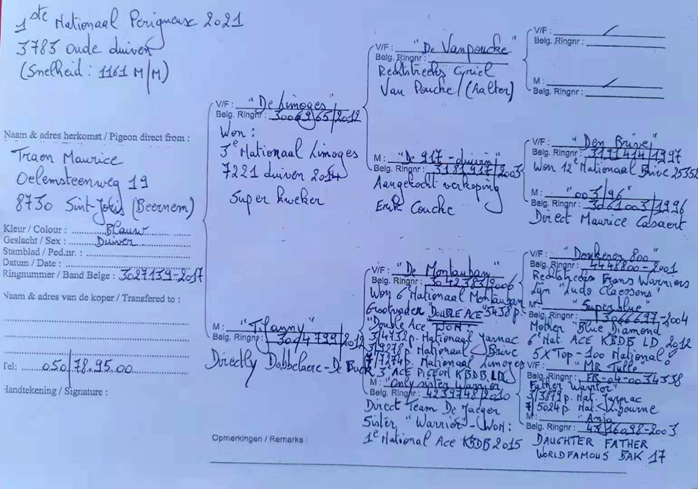 1ste Nationaal Perigueux 2021
3783 oude duiven
(Snelheid : 1161 M/M)
Naam & adres herkomst / Pigeon direct from :
Traen Maurice
Oelemsteenweg 19
8730 Sint-Joris (Beernem)
Kleur / Colour : Blauw
Geslacht / Sex : Duiver
Stamblad / Ped.nr. :
Datum / Date :
Ringnummer / Band Belge : 3027139-2017
Naam & adres van de koper / Transfered to :
Tel: 050/78.95.00
Handtekening / Signature :
V/F : "De Limoges"
Belg. Ringnr : 3006965/2012
Won :
3e Nationaal Limoges
7221 duiven 2014
Super kweker
M : "Tifanny"
Belg. Ringnr : 3004799/2012
Directly Dobbelaere-De Buck
Opmerkingen / Remarks :
V/F : "De Vanpoucke"
Belg. Ringnr :
Rechtstreeks Cyriel
Van Poucke (Aalter)
M : "De 917-duivin"
Belg. Ringnr : 3181917/2003
Aangekocht verkoping
Erik Couche
V/F : "De Montauban"
Belg. Ringnr : 3042383/2006
Won 6e Nationaal Montauban
Grootvader "DOUBLE ACE" 5438p.
"Double Ace" WON:
3/4732p. Nationaal Jarnac
Nationaal Brive
Nationaal Limoges
3e ACE PIGEON KBDB LD
M : "Only sister Warrior"
Belg. Ringnr : 4239748/2010
Direct Team De Jaeger
Sister "Warrior" - Won:
1e National Ace KBDB 2015
V/F :
Belg. Ringnr :
M :
Belg. Ringnr :
V/F : "Den Brive"
Belg. Ringnr : 3191414/1997
Won 12e Nationaal Brive
M : "003/96"
Belg. Ringnr : 3061003/1996
Direct Maurice Casaert
V/F : "Donkeren 800"
Belg. Ringnr : 4448800-2001
Rechtstreeks Frans Warriors
Lijn "Ludo Claessens"
M : "Superblue"
Belg. Ringnr : 3066697-2004
Mother "Blue Diamond
6e Nat ACE KBDB LD 2012
5x Top-100 National"
V/F : "MR Tulle"
Belg. Ringnr : FR-04-0034338
Father Warrior
Nat. Jarnac
7/5024p Nat. Libourne
M : "Anja"
Belg. Ringnr : 4316098-2003
DAUGHTER FATHER
WORLDFAMOUS BAK 17